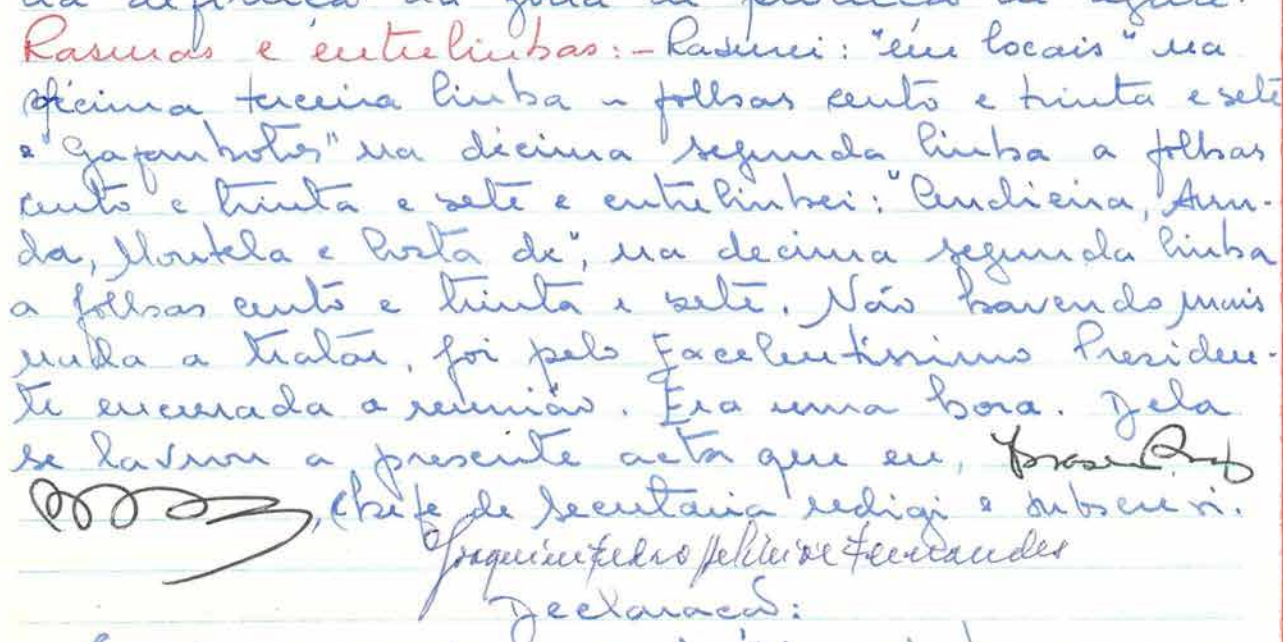 Rasuras e entrelinhas:- Rasurei: "em locais" na
décima terceira linha a folhas cento e trinta e sete
e "Gafanhotos" na décima segunda linha a folhas
cento e trinta e sete e entrelinhei: "Cendieira, Arru-
da, Moutela e Costa de", na decima segunda linha
a folhas cento e trinta e sete. Não havendo mais
nada a tratar, foi pelo Excelentissimo Presiden-
te encerrada a reunião. Era uma hora. Dela
se lavrou a presente acta que eu,
, chefe de Secretaria redigi e subscrevi.
Joaquim Pedro Fernandes
Declaração: